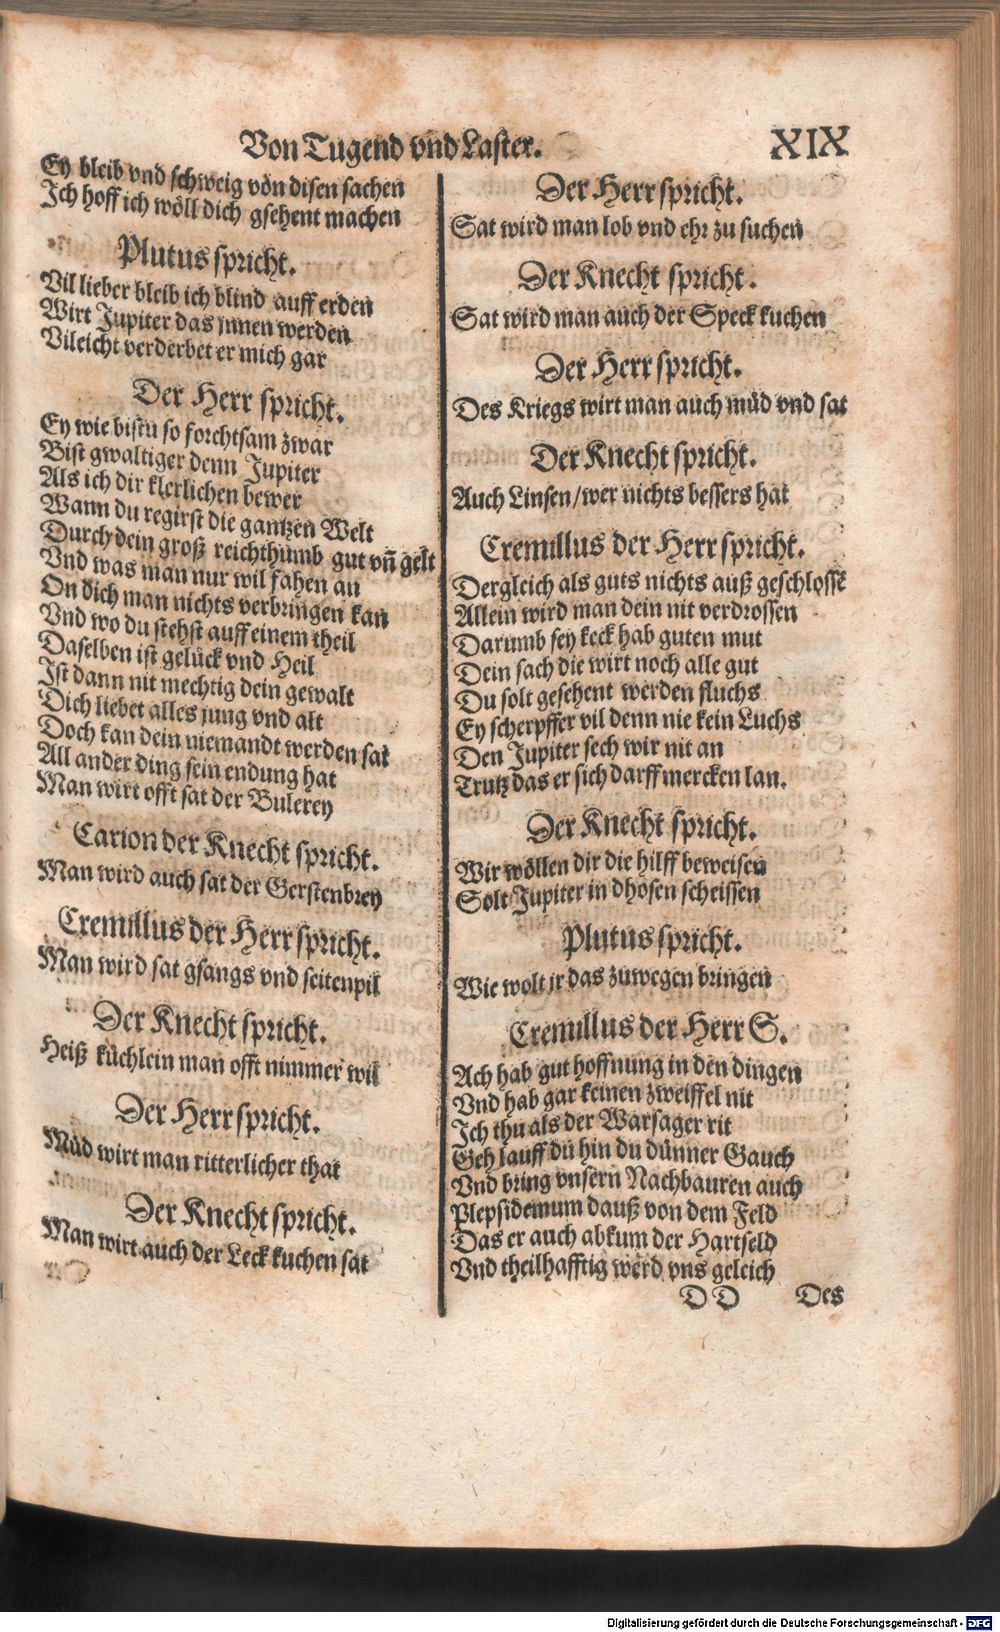 Von Tugend vnd Laster.
XIX
Ey bleib vnd schweig von disen sachen
Ich hoff ich wöll dich gsehent machen
Plutus spricht.
Vil lieber bleib ich blind auff erden
Wirt Jupiter das jnnen werden
Vileicht verderbet er mich gar
Der Herr spricht.
Ey wie bistu so forchtsam zwar
Bist gwaltiger denn Jupiter
Als ich dir klerlichen bewer
Wann du regirst die gantzen Welt
Durch dein groß reichthumb gut vñ gelt
Vnd was man nur wil fahen an
On dich man nichts verbringen kan
Vnd wo du stehst auff einem theil
Daselben ist gelück vnd Heil
Ist dann nit mechtig dein gewalt
Dich liebet alles jung vnd alt
Doch kan dein niemandt werden sat
All ander ding sein endung hat
Man wirt offt sat der Bulerey
Carion der Knecht spricht.
Man wird auch sat der Gerstenbrey
Cremillus der Herr spricht.
Man wird sat gsangs vnd seitenpil
Der Knecht spricht.
Heiß küchlein man offt nimmer wil
Der Herr spricht.
Müd wirt man ritterlicher that
Der Knecht spricht.
Man wirt auch der Leck kuchen sat
Der Herr spricht.
Sat wird man lob vnd ehr zu suchen
Der Knecht spricht.
Sat wird man auch der Speck kuchen
Der Herr spricht.
Des Kriegs wirt man auch müd vnd sat
Der Knecht spricht.
Auch Linsen/wer nichts bessers hat
Cremillus der Herr spricht.
Dergleich als guts nichts auß geschlossẽ
Allein wird man dein nit verdrossen
Darumb sey keck hab guten mut
Dein sach die wirt noch alle gut
Du solt gesehent werden fluchs
Ey scherpffer vil denn nie kein Luchs
Den Jupiter sech wir nit an
Trutz das er sich darff mercken lan.
Der Knecht spricht.
Wir wöllen dir die hilff beweisen
Solt Jupiter in dhosen scheissen
Plutus spricht.
Wie wolt jr das zuwegen bringen
Cremillus der Herr S.
Ach hab gut hoffnung in den dingen
Vnd hab gar keinen zweiffel nit
Ich thu als der Warsager rit
Geh lauff du hin du dünner Gauch
Vnd bring vnsern Nachbauren auch
Plepsidemum dauß von dem Feld
Das er auch abkum der Hartseld
Vnd theilhafftig werd vns geleich
D D Des
Digitalisierung gefördert durch die Deutsche Forschungsgemeinschaft - DFG